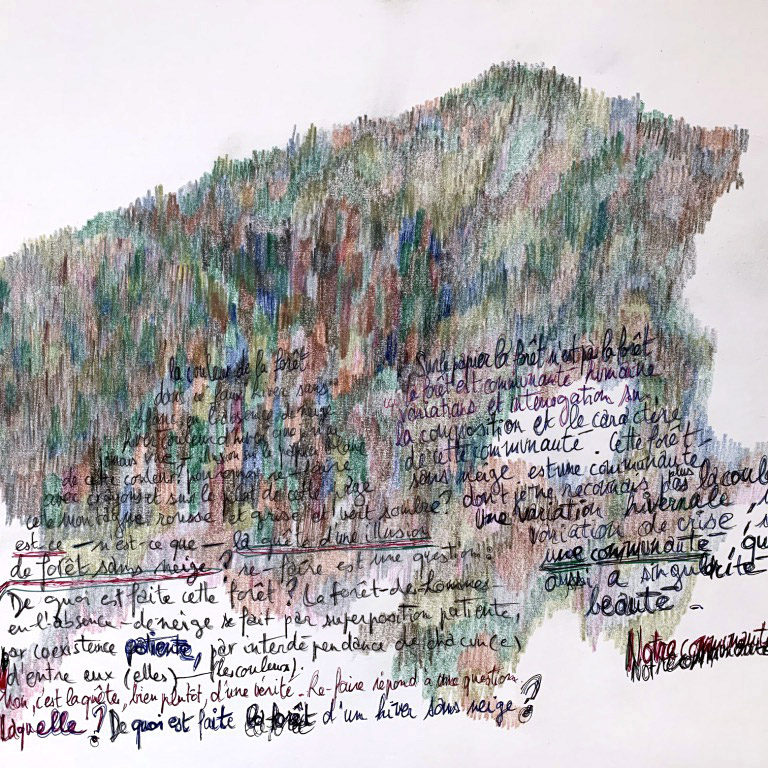 la couleur de la forêt
dans ce faux hiver sans
blanc en l'absence de neige
jamais vue ? sur le papier blanc
de cette couleur? pourquoi ne
avec crayons et sur le plat de cette neige
cette montagne rousse et grise et vert sombre?
est-ce – n'est-ce que – la quête d'une illusion
de forêt sans neige ? re-faire est une question:
De quoi est faite cette forêt ? La forêt-de-hommes-
en-l'absence-de neige se fait par superposition patiente,
par coexistence patiente, par interdépendance de chacun(e)
d'entre eux (elles) – (les couleurs).
Non, c'est la quête, bien plutôt, d'une vérité. Re-faire répond à une question.
Laquelle ? De quoi est faite la forêt d'un hiver sans neige ?
Sur le papier la forêt n'est pas la forêt
la forêt est communauté humaine
variations et interrogation su
la composition et le caractère
de cette communauté. Cette forêt
sans neige est une communauté
dont je ne reconnais plus la coule
une variation hivernale,
variation de crise,
une communauté, qu
aussi a singul
beauté.
Notre communauté